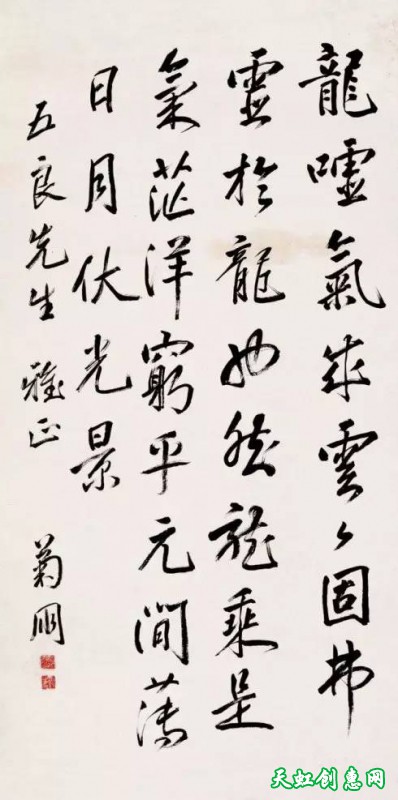 龍噓氣成雲〻固弗
靈於龍也然龍乘是
氣茫洋窮乎元間薄
日月伏光景
五良先生 雅正 菊朋
天虹创惠网